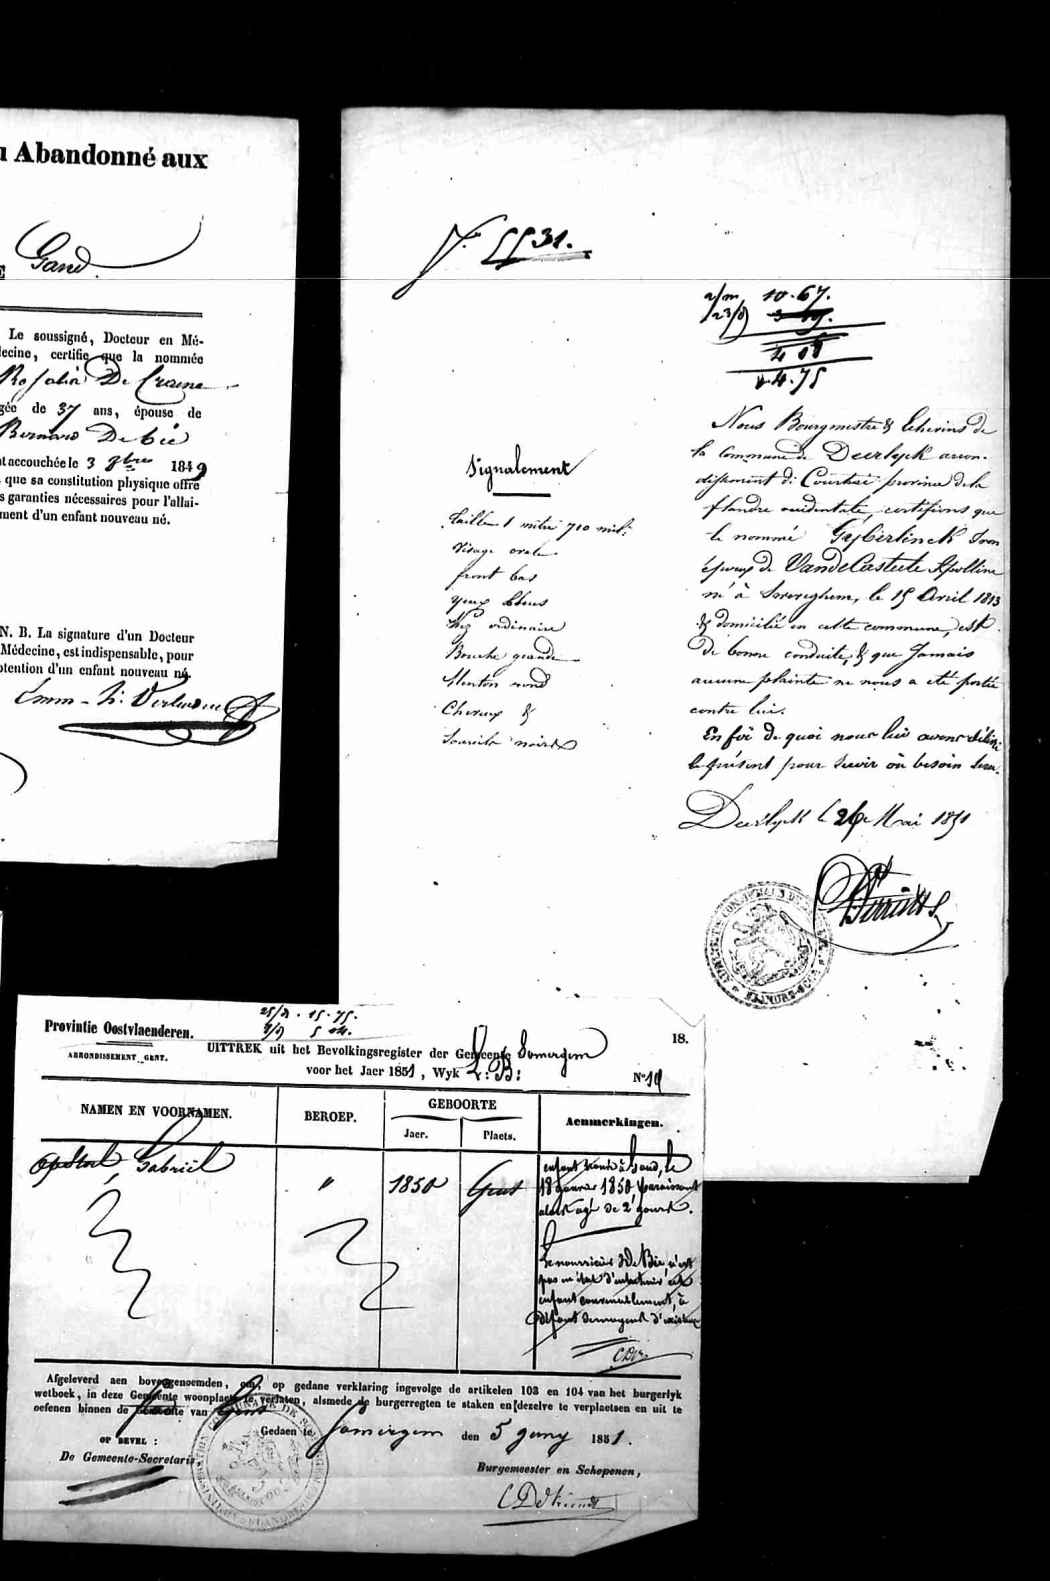 u Abandonné aux
E Gand.
Le soussigné, Docteur en Mé-
decine, certifie que la nommée
Rosalia De Craene
gée de 37 ans, épouse de
Bernard De Bie
t accouchée le 3 9bre 1849
que sa constitution physique offre
s garanties nécessaires pour l'allai-
ment d'un enfant nouveau né.
N. B. La signature d'un Docteur
Médecine, est indispensable, pour
btention d'un enfant nouveau né.
N° 5531.
10.67.
4.75
Signalement
Taille 1 mètre 710 mill:
Visage ovale
front bas
yeux bleus
Nez ordinaire
Bouche grande
Menton rond
Cheveux &
Sourcils noirs
Nous Bourgmestre & Echevins de
la commune de Deerlyck arron-
dissement de Courtrai province de la
flandre occidentale, certifions que
le nommé Gyberlinck Ivon
époux de VandeCasteele Apolline
né à Sweveghem, le 15 Avril 1813
& domicilié en cette commune, est
de bonne conduite, & que Jamais
aucune plainte ne nous a été portée
contre lui.
En foi de quoi nous lui avons délivré
le présent pour servir où besoin sera.
Deerlyck le 26 Mai 1851
Provintie Oostvlaenderen.
15.75.
ARRONDISSEMENT GENT.
18.
UITTREK uit het Bevolkingsregister der Gemeente Somergem
voor het Jaer 1851, Wyk L: B: N° 19
NAMEN EN VOORNAMEN.
BEROEP.
GEBOORTE
Jaer.
Plaets.
Aenmerkingen.
Opstal, Gabriël
"
1850
Gent
enfant trouvé à Gand, le
18 janvier 1850 paraissant
alors agé de 2 jours.
Le nourricier De Bie, n'est
pas en état d'entretenir cet
enfant convenablement, à
défaut de moyens d'existence
Afgeleverd aen bovengenoemden, om, op gedane verklaring ingevolge de artikelen 103 en 104 van het burgerlyk
wetboek, in deze Gemeente woonplaets te verlaten, alsmede de burgerregten te staken en dezelve te verplaetsen en uit te
oefenen binnen de Gemeente van Gent
Gedaen te Somergem den 5 juny 1851.
OP BEVEL :
De Gemeente-Secretaris
Burgemeester en Schepenen,